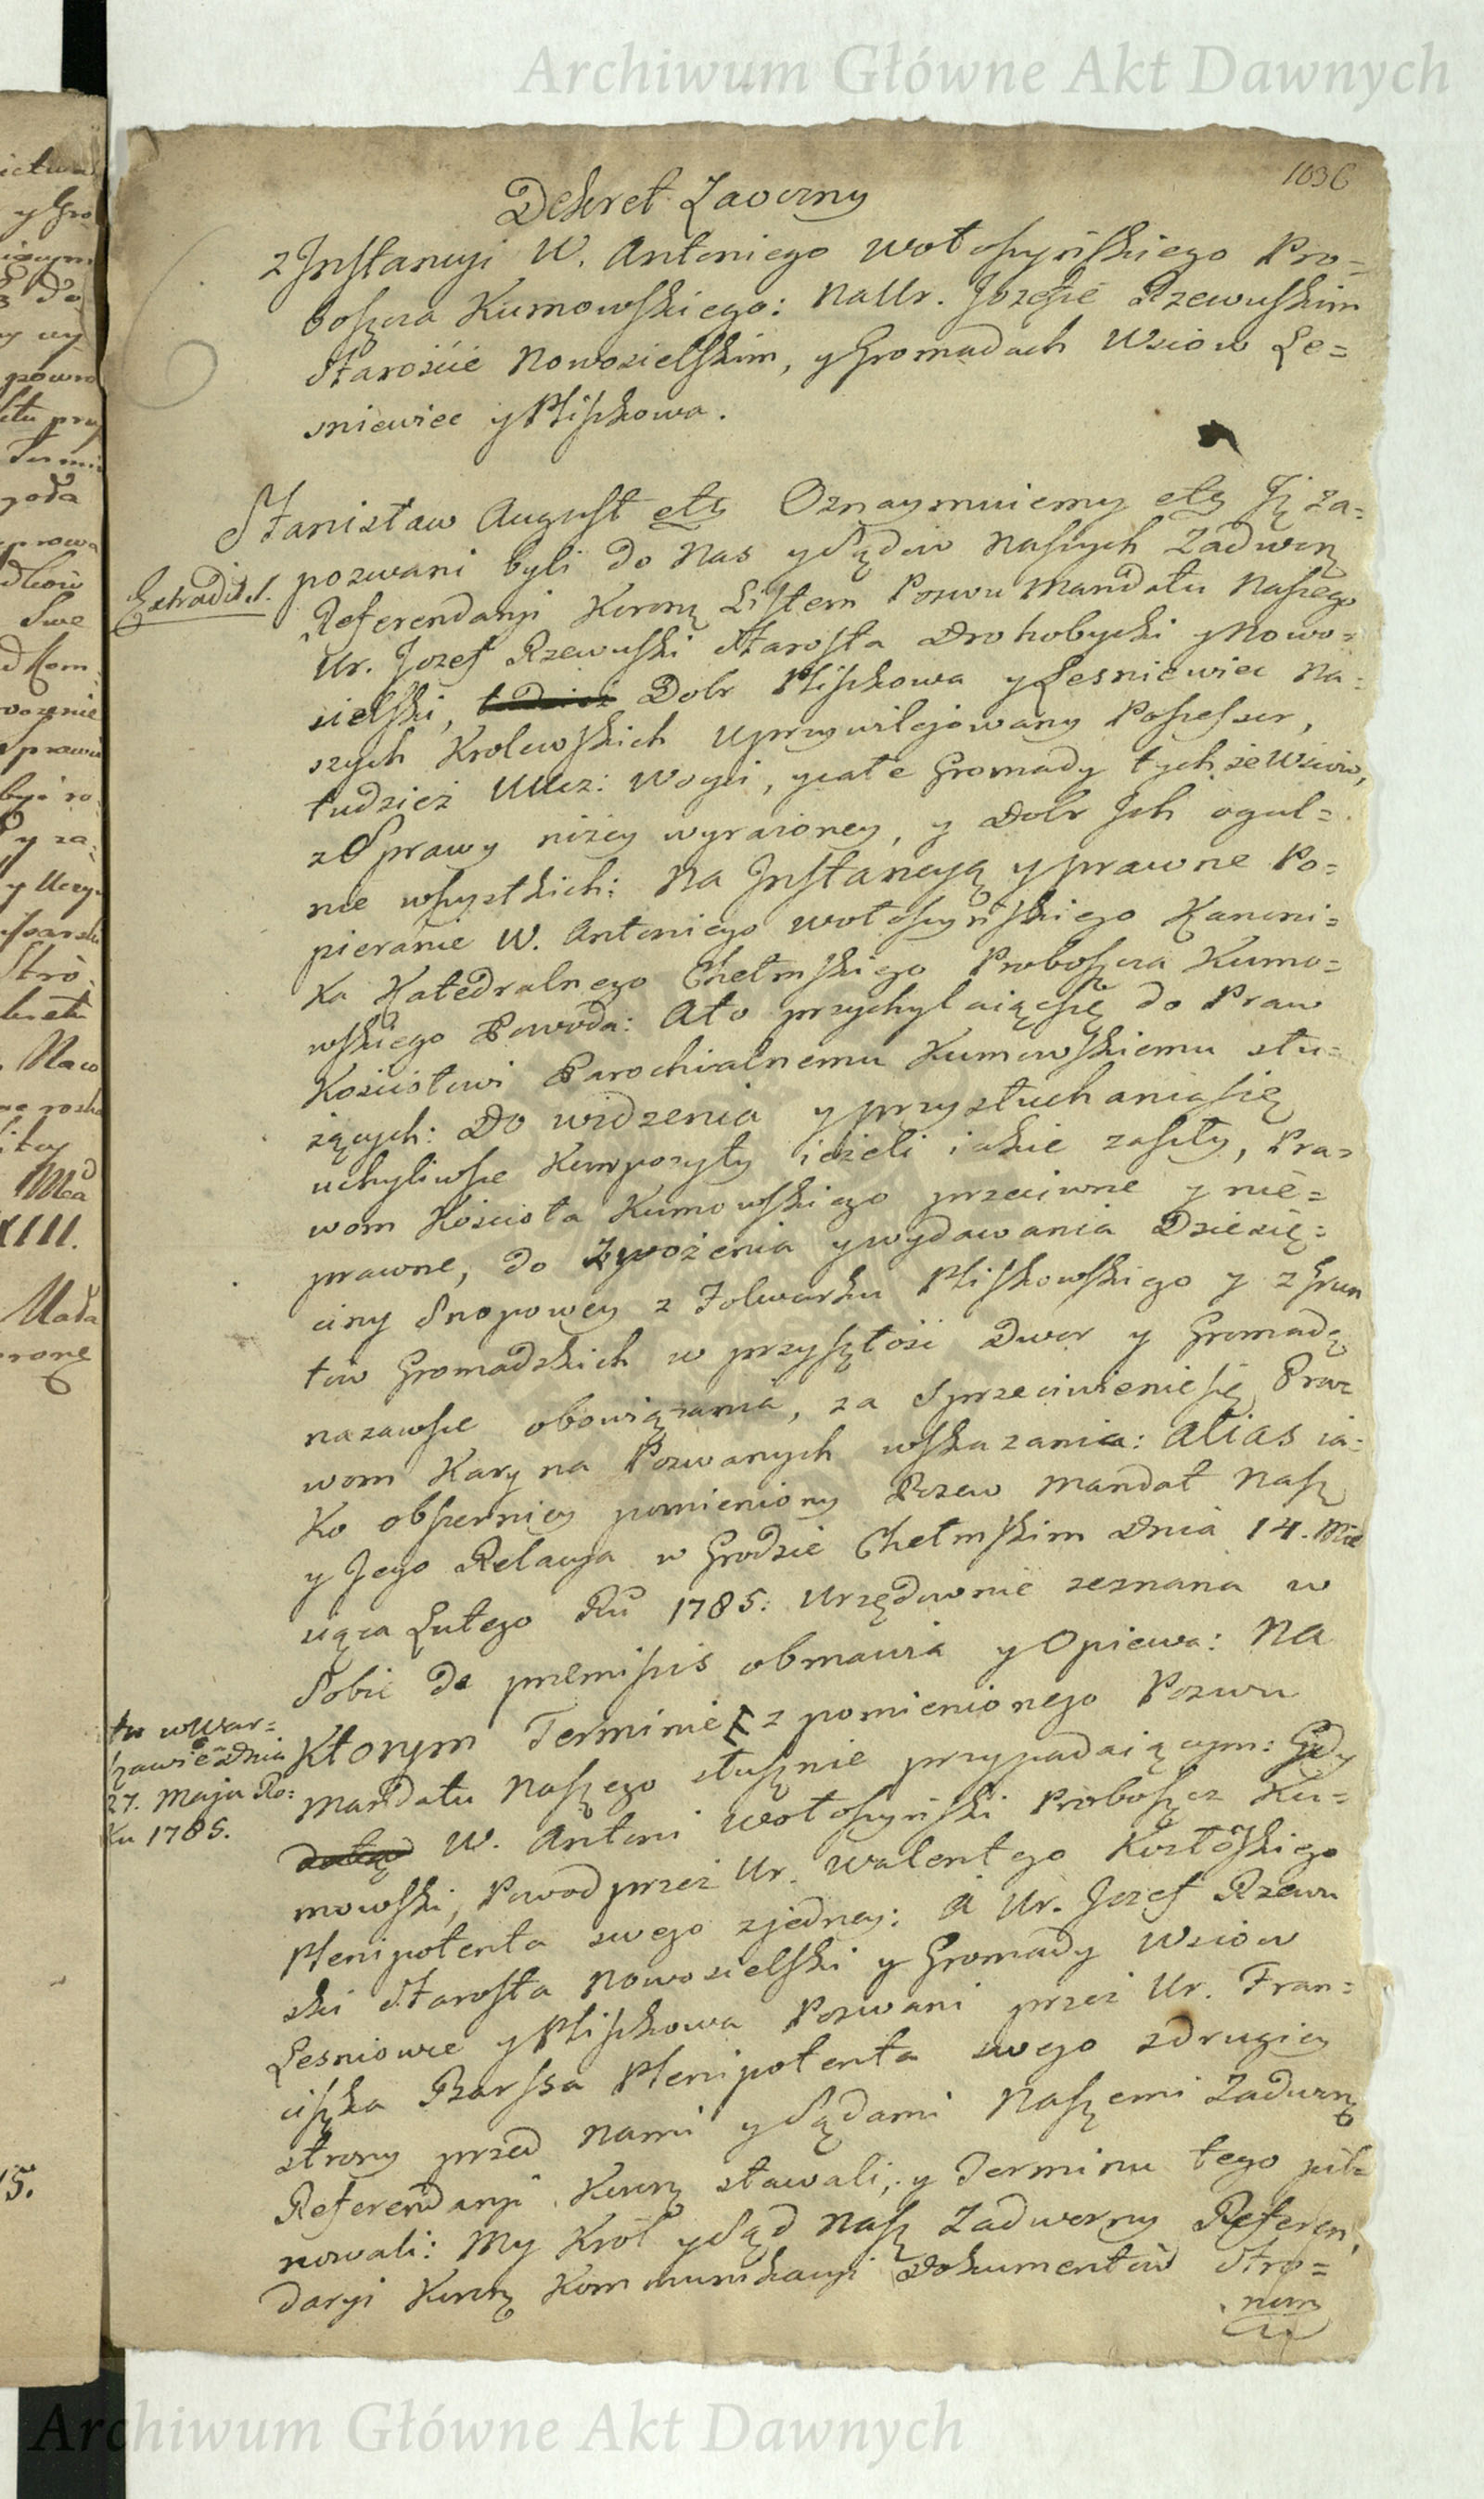 Archiwum Główne Akt Dawnych
1036
Dekret Zaoczny
z Instancyi W. Antoniego Wołoszyńskiego Pro=
boszcza Kumowskiego: Na Ur. Jozefie Rzewuskim
Starosćie Nowosielskim, y Gromadach Wsiow Le=
sniewiec y Pliskowa.
Stanisław August etc Oznaymuiemy etc Iż za=
pozwani byli do Nas y Sądow Naszych Zadwor
Extradit.
Referendaryi Koron Listem Pozwu Mandatu Naszego
Ur. Jozef Rzewuski Starosta Drohobycki y Nowo=
sielski, Dobr Pliskowa y Lesniewiec Na=
szych Krolewskich Uprzywilejowany Possessor,
tudzież Ucz: Woyci, y całe Gromady tychże Wsiow,
z Sprawy niżey wyrażoney, y Dobr Ich ogul=
nie wszystkich: Na Instancyą y prawne Po=
pieranie W. Antoniego Wołoszyńskiego Kanoni=
ka Katedralnego Chełmskiego Proboszcza Kumo=
wskiego Powoda: Ato przychylaiąc się do Praw
Kosciołowi Parochialnemu Kumowskiemu słu=
żących: Do widzenia y przysłuchania się
uchyliwsze Kompozyty ieżeli iakie zaszły, Pra=
wom Kościoła Kumowskiego przeciwne y nie=
prawne, do Zwożenia y wydawania Dziesię=
ciny Snopowey z Folwarku Pliskowskiego y z Grun
tow Gromadzkich w przyszłość Dwor y Gromadę
nazawsze obowiązania, za Sprzeciwienie się Pra
wom Kary na Pozwanych wskazania: Alias ia=
ko obszerniey pomieniony Pozew Mandat Nasz
y Jego Relacya w Grodzie Chełmskim Dnia 14. Mie
siąca Lutego Ru 1785: Urzędownie zeznana w
Sobie de premissis obmawia y Opiewa: Na
Ktorym Terminie z pomienionego Pozwu
tu w War=
szawie Dnia
27. Maja Ro:
ku 1785.
Mandatu Naszego słusznie przypadaiącym: Gdy
W. Antoni Wołoszyński Proboszcz Ku=
mowski, Powod przez Ur. Walentego Kozłoskiego
Plenipotenta swego z jedney: A Ur. Jozef Rzewu
ski Starosta Nowosielski y Gromady Wsiow
Lesniowce y Pliskowa Pozwani przez Ur. Fran=
ciszka Barssa Plenipotenta swego z drugiey
strony przed Nami y Sądami Naszemi Zadwor
Referendaryi Koron stawali, y Terminu tego pil=
nowali: My Krol y Sąd Nasz Zadworny Referen
daryi Koron Kommunikacyi Dokumentow Stro=
nom
Archiwum Główne Akt Dawnych